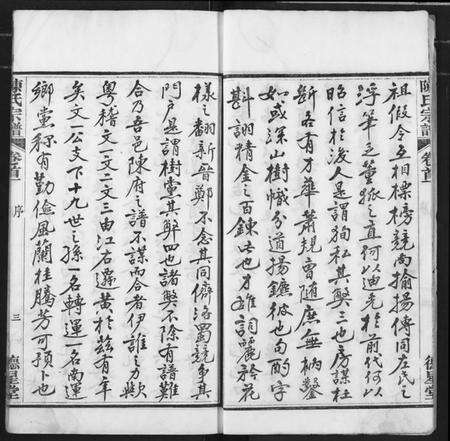 陳氏宗譜
卷首
祖假令互相標榜競尚揄揚傳同左氏之
浮筆乏董狐之直何以迪光於前代何以
昭信於後人是謂徇私其弊三也房謀杜
斷各有才華蕭規曹隨庶無枘鑿
如或深山樹幟分道揚鑣彼也句酌字
斟詡精金之百鍊此也才雄詞麗誇花
樣之翻新晉鄭不念其同儕洛蜀競爭其
門戶是謂樹黨其弊四也諸弊不除有譜難
合乃吾邑陳府之譜不謀而合者伊誰之力歟
粵稽文一文二文三由江右遷黃於茲有年
矣文一公支下十九世之孫一名轉運一名南運
鄉黨稱有勤儉風蘭桂騰芳可預卜也
陳氏宗譜
卷首
序
三
德星堂
德星堂